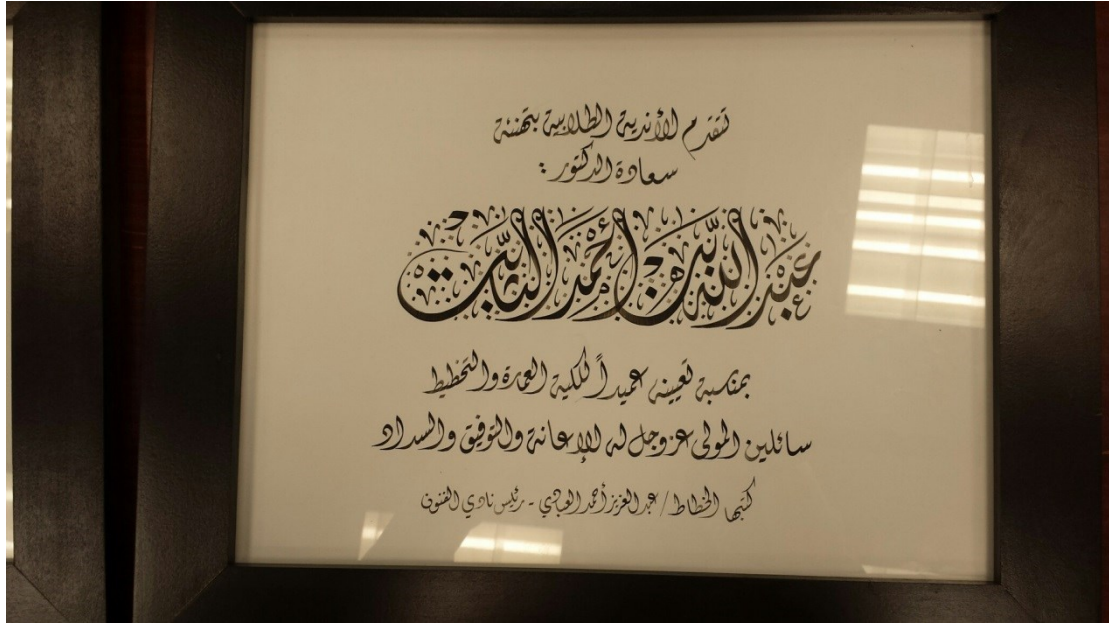 تتقدم الأندية الطلابية بتهنئة
سعادة الدكتور :
عَبْدُ اللَّه بْن أَحْمَد الثَّابِت
بمناسبة تعيينه عميداً لكلية العمارة والتخطيط
سائلين المولى عز وجل له الإعانة والتوفيق والسداد
كتبها الخطاط / عبد العزيز أحمد العبادي - رئيس نادي الفنون